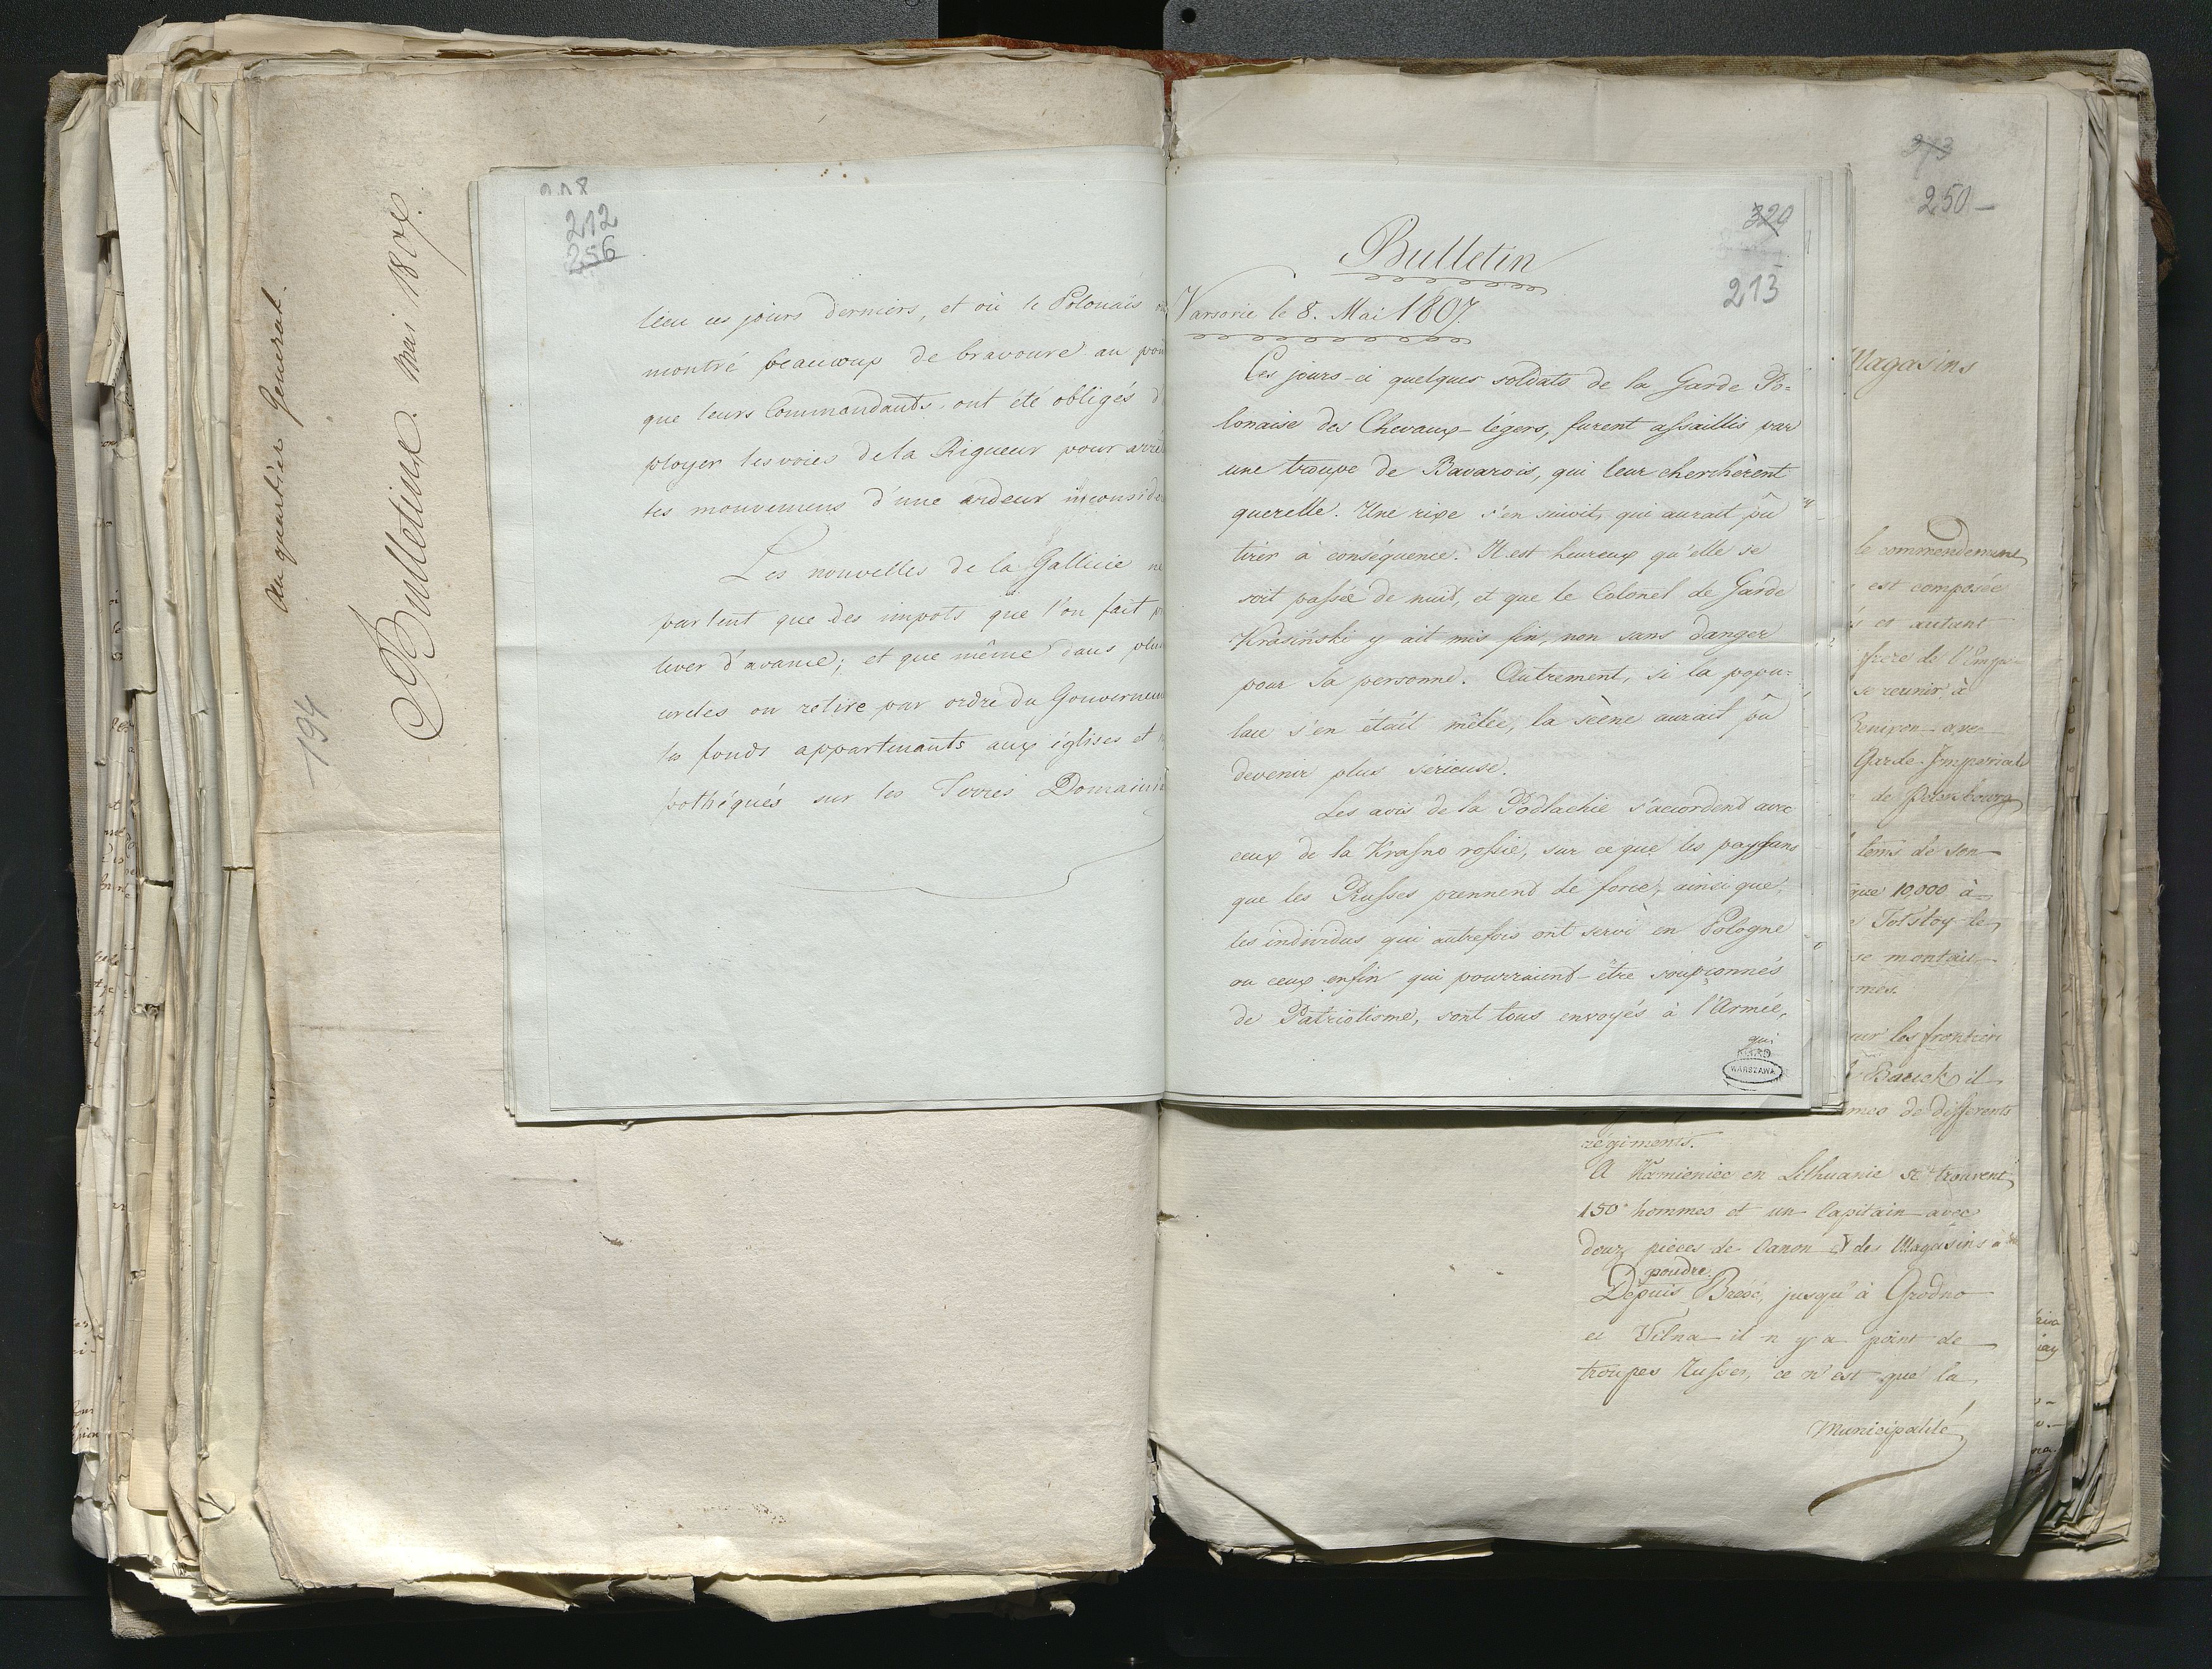 Au quartier General.
Bulletins. mai 1807.
194
208
212
256
lieu ces jours derniers, et où le Polonais
montré beaucoup de bravoure au poin
que leurs Commandants, ont été obligés d'
ployer les voies de la Rigueur pour arrê
les mouvemens d'une ardeur inconsidé
Les nouvelles de la Gallicie ne
parlent que des impots que l'on fait
lever d'avance; et que même dans plus
cercles on retire par ordre du Gouverneme
les fonds appartenants aux églises et
pothéqués sur les Terres Domainia
320
213
Bulletin
Varsovie le 8. Mai 1807.
Ces jours-ci quelques soldats de la Garde Po=
lonaise des Chevaux-légers, furent assaillis par
une troupe de Bavarois, qui leur cherchèrent
querelle. Une rixe s'en suivit, qui aurait pû
tirer à conséquence. Il est heureux qu'elle se
soit passée de nuit, et que le Colonel de Garde
Krasiński y ait mis fin, non sans danger
pour sa personne. Autrement, si la popu=
lace s'en était mêlée, la scène aurait pû
devenir plus sérieuse.
Les avis de la Podlachie s'accordent avec
ceux de la Krasno rossie, sur ce que les paysans
que les Russes prennent de force, ainsi que,
les individus qui autrefois ont servi en Pologne
ou ceux enfin qui pourraient-être soupçonnés
de Patriotisme, sont tous envoyés à l'Armée,
qui
WARSZAWA
273
250
Magasins
le commendement
est composée
et autant
frere de l'Empe
se reunir, à
avec
Garde Imperiale
de Petersbourg
tems de son
que 10,000 à
Tolstoy le
se montai
mes.
sur les frontier
il
mes de differents
régimens.
A Kamieniec en Lithuanie se trouvent
150 hommes et un Capitain avec
deux pieces de Canon et des Magasins à
poudre.
Depuis Bresc, jusqu'à Grodno
et Vilna il n'y a point de
troupes Russes, ce n'est que la
Municipalité